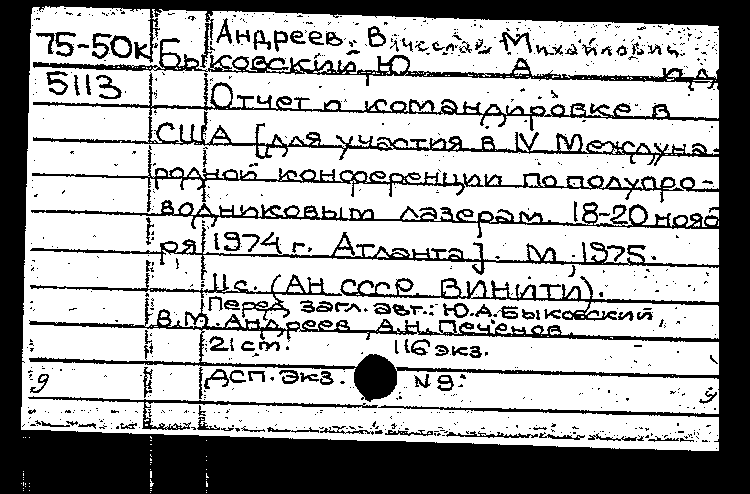 75-50к
5113
Андреев, Вячеслав Михайлович
Быковский, Ю А и др
Отчет о командировке в
США [для участия в IV Междуна-
родной конференции по полупро-
водниковым лазерам. 18-20 нояб
ря 1974 г. Атланта]. М., 1975.
11с. (АН СССР. ВИНИТИ).
Перед загл. авт.: Ю.А.Быковский,
В.М.Андреев, А.Н.Печенов.
21 ст. 116 экз.
9 ДСП. экз. N 9.